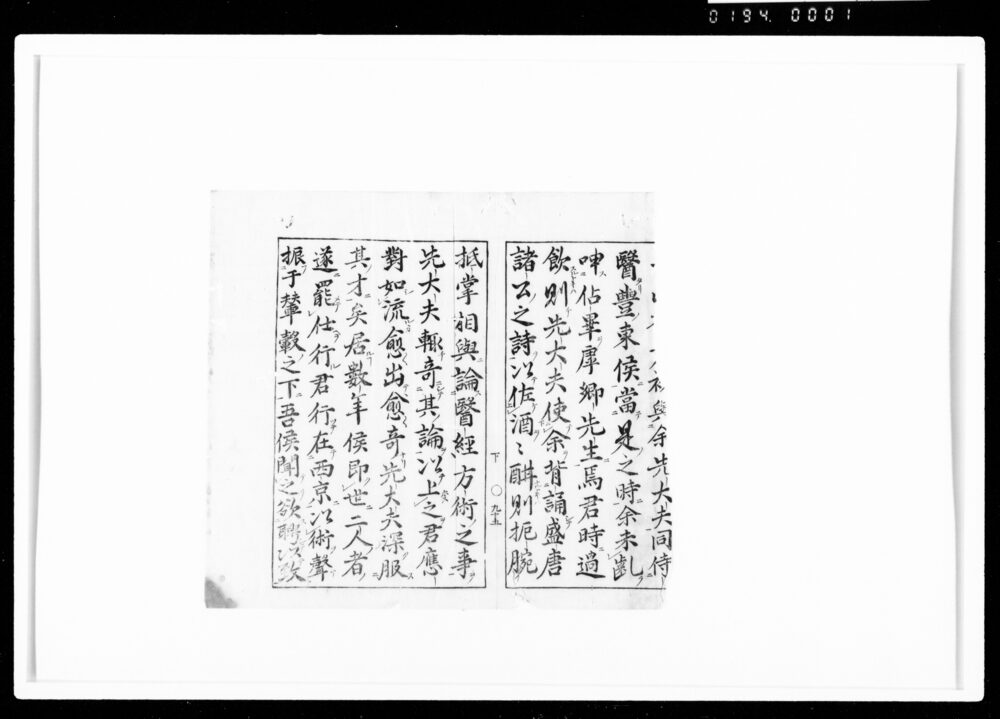 0194. 0001
與余先大夫同侍
醫豐東侯當是之時余未齔
呻佔畢序卿先生焉君時過
飲則先大夫使余背誦盛唐
諸公之詩以佐酒〻酣則扼腕
下 〇 九十五
抵掌相與論醫經方術之事
先大夫輙奇其論以上之君應
對如流愈出愈奇先大夫深服
其才矣居數年侯即世二人者
遂罷仕行君行在西京以術聲
振于輦轂之下吾侯聞之欲聘以政